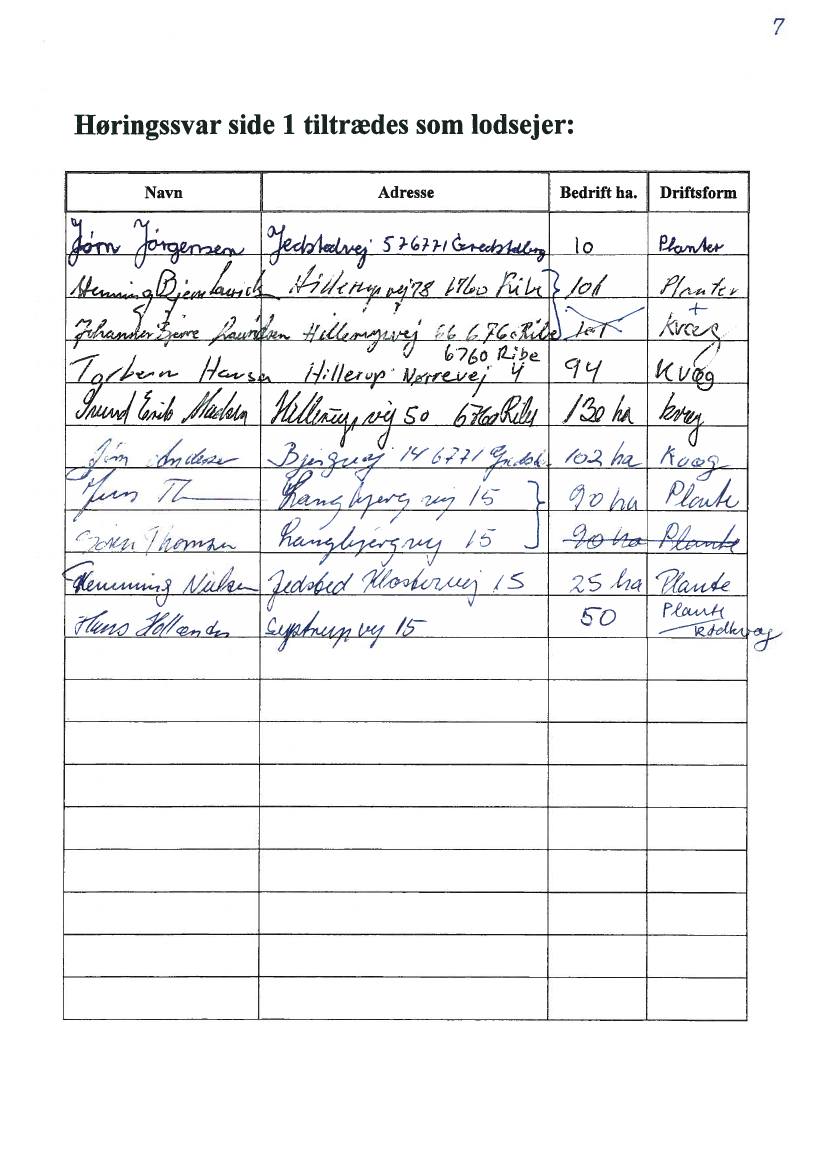 7
Høringssvar side 1 tiltrædes som lodsejer:
Navn Adresse Bedrift ha. Driftsform
Jørn Jörgensen Jedstedvej 57 6771 Gredstedbro 10 Planter
Henning Bjern Lauridsen Hillerupvej 78 6760 Ribe 101 Planter
+
Johannes Bjerre Lauridsen Hillerupvej 66 6760 Ribe 101 Kvæg
6760 Ribe
Torben Hansen Hillerup Nørrevej 4 94 Kvæg
Svend Erik Madsen Hillerupvej 50 6760 Ribe 130 ha kvæg
Jørn Andersen 14 6771 102 ha Kvæg
Jens Langbjergvej 15 90 ha Plante
Søren Thomsen Langbjergvej 15 90 ha Plante
Flemming Nielsen Jedsted Klostervej 15 25 ha Plante
Hans Hollænder 15 50 Plante
kødkvæg